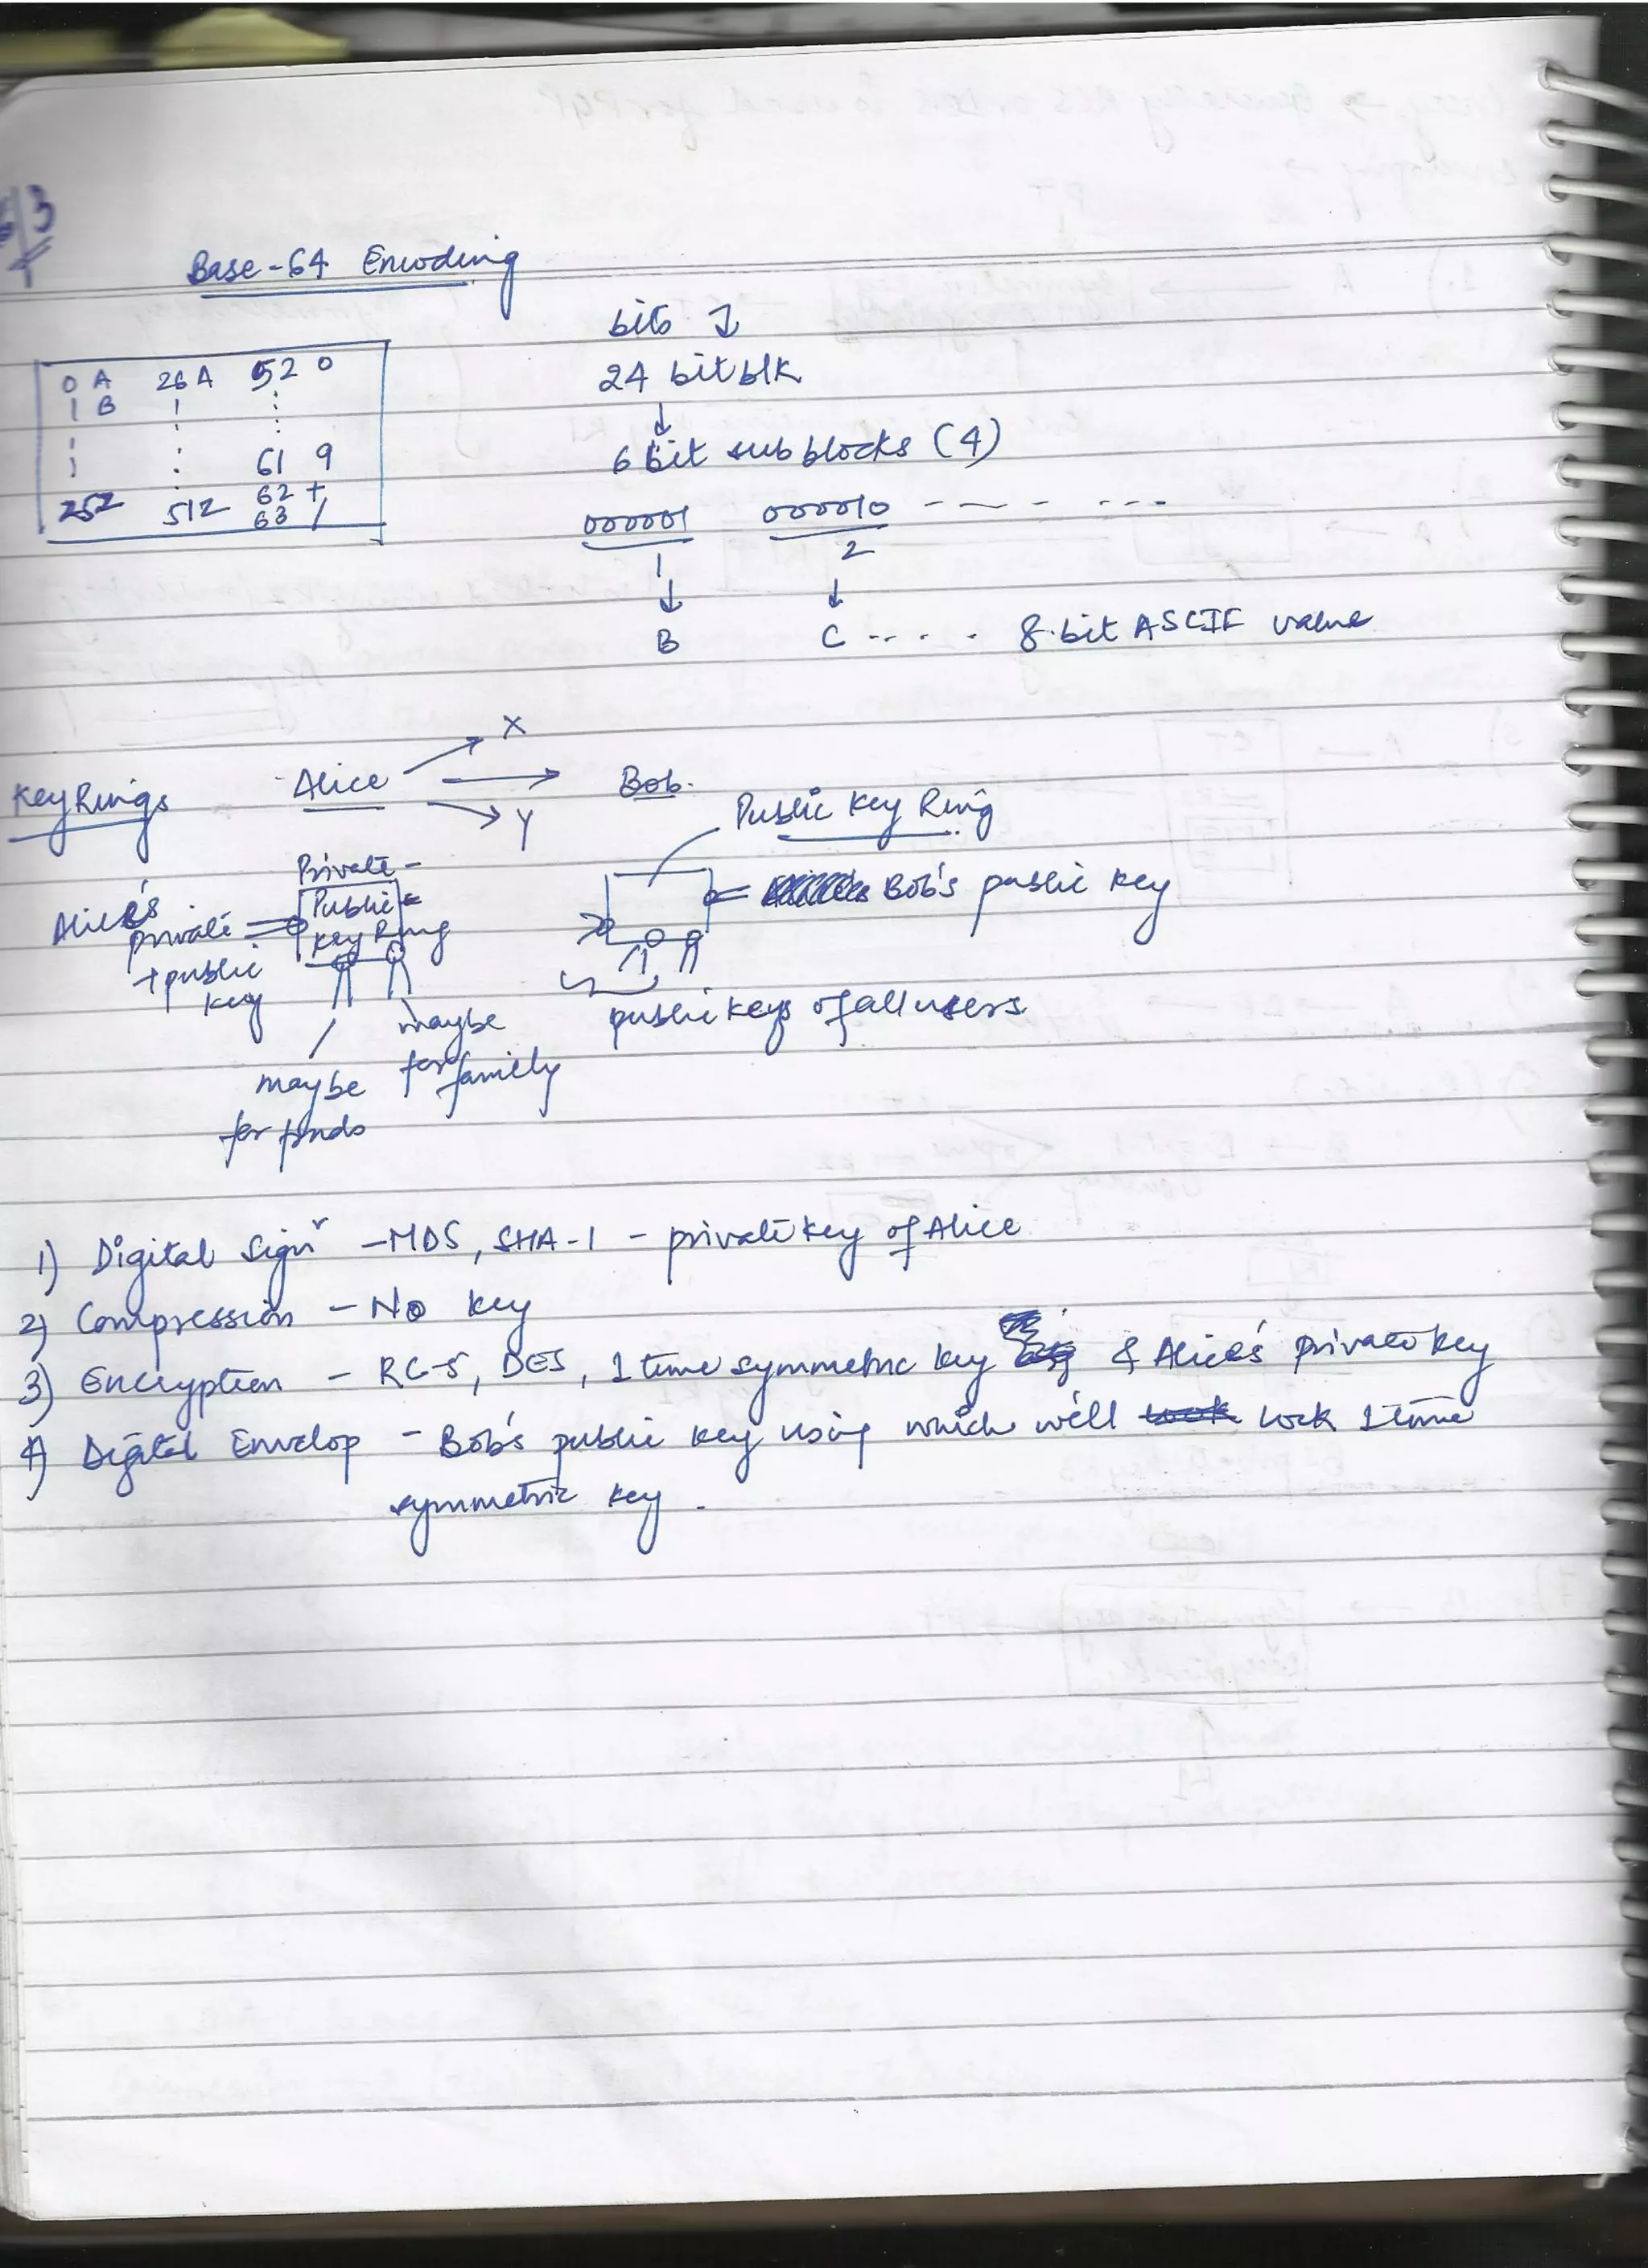 Base-64 Encoding
bits
24 bit blk
0 A 26 A 52 0
1 B
6 bit sub blocks (4)
61 9
62 +
25Z 51Z 63 /
000001 000010 -- - - ...
1 2
B C .... 8-bit ASCII value
X
Key Rings Alice Bob.
Y
Public Key Ring
Private -
Public
Key Ring
Alice's
private
+ public
key
Bob's public key
maybe
for frnds
maybe
for family
public keys of all users
1) Digital Signr - MD5, SHA-1 - private key of Alice
2) Compression - No key
3) Encryption - RC-5, DES, 1 time symmetric key & Alice's private key
4) Digital Envelop - Bob's public key using which we'll lock 1 time
symmetric key.